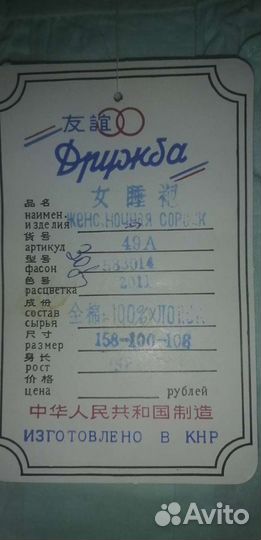 友誼
Дружба
品名 女睡袍
наимен. изделия женс. ночная сороч
货号
артикул 49А
型号
фасон 583014
色号
расцветка 2011
成份
состав сырья 全棉 100%хлопок
尺寸
размер 158-100-108
身长
рост
价格
цена рублей
中华人民共和国制造
ИЗГОТОВЛЕНО В КНР
Avito